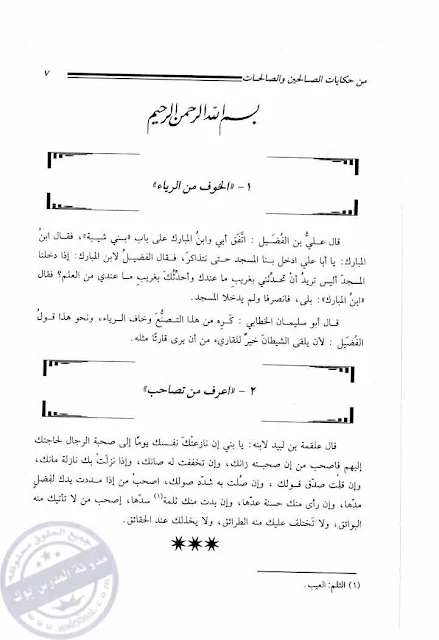 من حكايات الصالحين والصالحات
٧
بسم الله الرحمن الرحيم
١ - «الخوف من الرياء»
قال عليُّ بن الفُضَيل : اتَّفَق أبي وابنُ المبارك على باب «بني شيبة»، فقال ابنُ
المبارك: يا أبا علي ادخل بنا المسجد حتى نتذاكرَ، فقال الفضيلُ لابن المبارك: إذا دخلنا
المسجدَ أليس تريدُ أنْ تحدِّثني بغريبِ ما عندك وأحدِّثُكَ بغريبِ ما عندي من العلم؟ فقال
«ابنُ المبارك»: بلى، فانصرفا ولم يدخلا المسجد.
قال أبو سليمان الخطابي : كَرِه من هذا التصنُّعَ وخاف الرياء، ونحو هذا قولُ
الفُضَيل : لأن يلقى الشيطانَ خيرٌ للقاريء من أن يرى قارئًا مثله.
٢ - «اعرف من تصاحب»
قال علقمة بن لبيد لابنه: يا بني إن نازعتْكَ نفسك يومًا إلى صحبة الرجال لحاجتك
إليهم فاصحب من إن صحبته زانك، وإن تخففت له صانك، وإذا نزلَتْ بك نازلة مانك،
وإن قلت صدَّق قولك ، وإن صُلت به شدّد صولك، اصحبْ من إذا مددت يدك لِفضلٍ
مدّها، وإن رأى منك حسنة عدّها، وإن بدت منك ثلمة(١) سدّها، إصحب من لا تأتيك منه
البوائق، ولا تَختلف عليك منه الطرائق، ولا يخذلك عند الحقائق.
(١) الثلم: العيب.
جميع الحقوق محفوظة
مدونة المدرس بوك